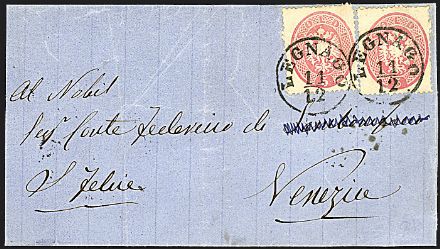 LEGNAGO
11
12
LEGNAGO
11
12
Al Nobil
Sig. Conte Federico de
S. Felice
Venezia